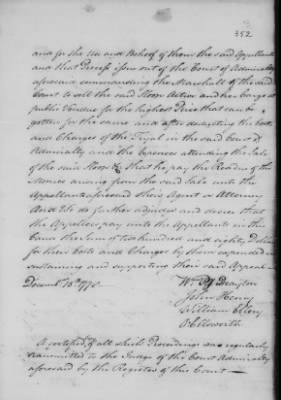 352
and for the Use and Behoof of them the said Appellants
and that Process issue out of the Court of Admiralty
aforesaid commanding the Marshall of the said
Court to sell the said Sloop Active and her Cargo at
public Vendue for the highest Price that can be
gotten for the same and after deducting the Costs
and Charges of the Trial in the said Court of
Admiralty and the Expences attending the Sale
of the said Sloop &c that he pay the Residue of the
Monies arising from the said Sale unto the
Appellants aforesaid their Agent or Attorney
And do further adjudge and decree that
the Appellees pay unto the Appellants in the
Cause the Sum of two hundred and eighty Dollars
for their Costs and Charges by them expended in
sustaining and supporting their said Appeal
Decemr 15th 1778
Wm Hy Drayton
John Henry
William Ellery
O Ellsworth
A certified of all which Proceedings was regularly
transmitted to the Judge of the Court Admiralty
aforesaid by the Register of this Court